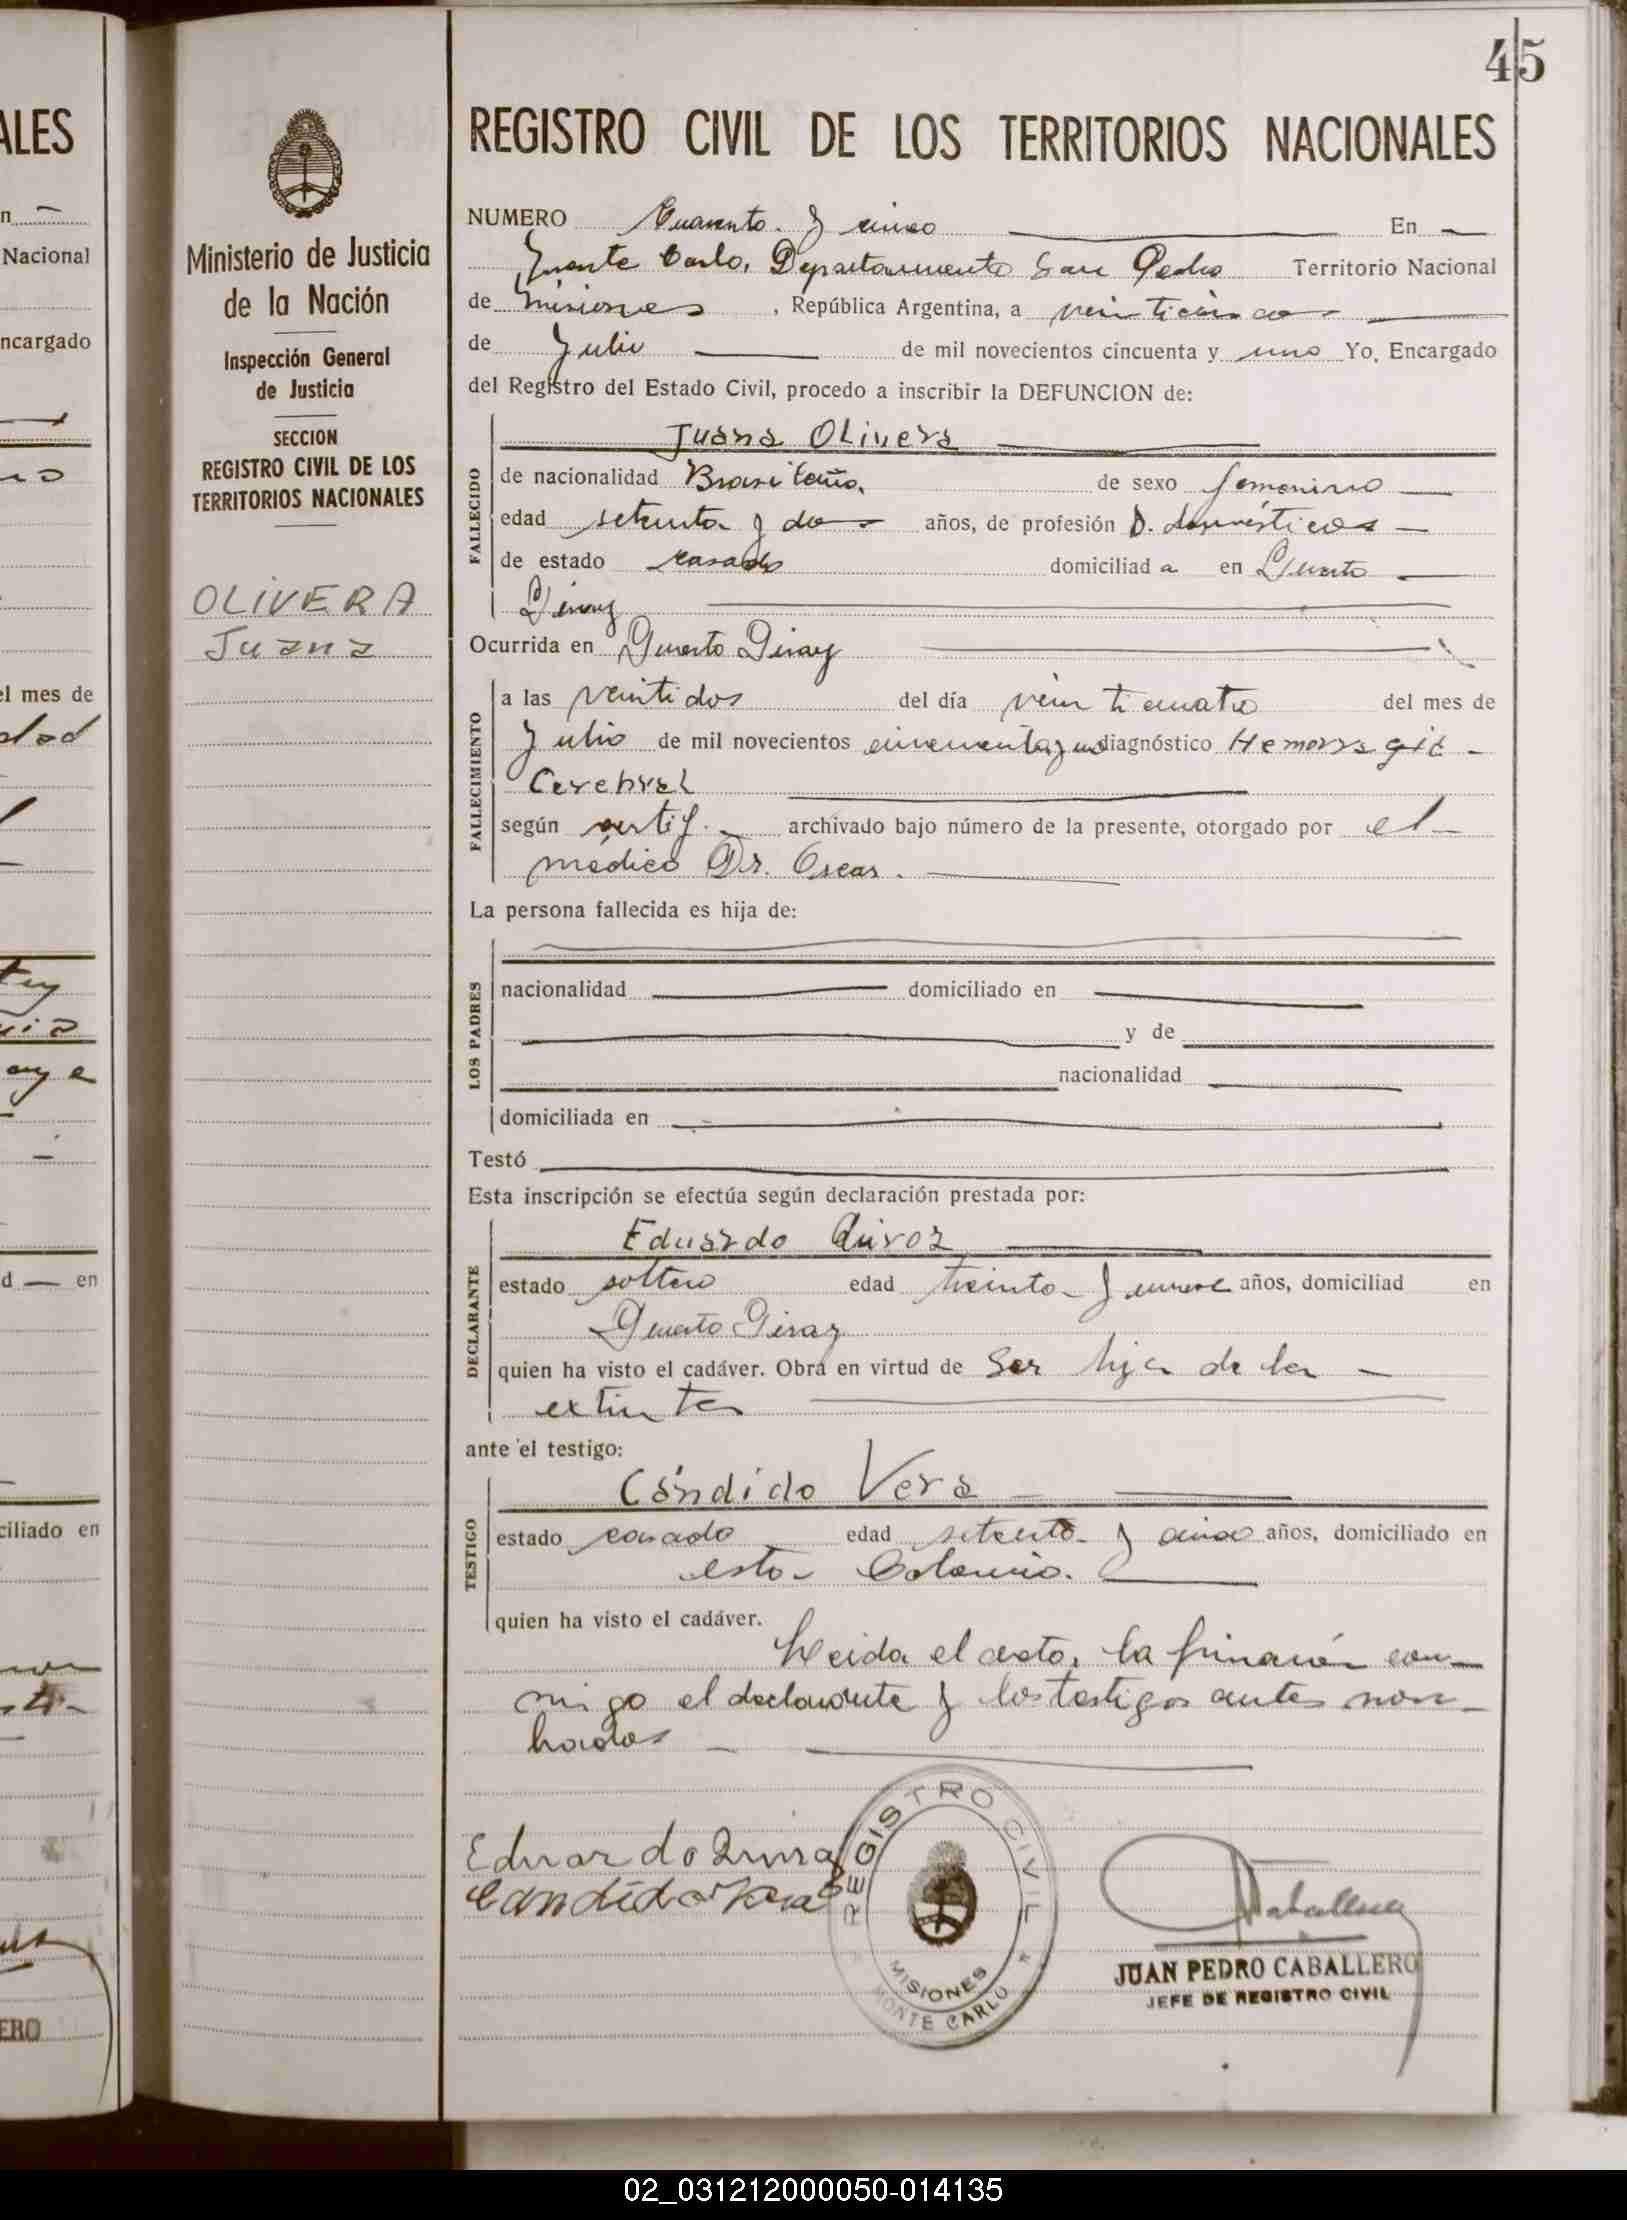 45
REGISTRO CIVIL DE LOS TERRITORIOS NACIONALES
Ministerio de Justicia
de la Nación
Inspección General
de Justicia
SECCION
REGISTRO CIVIL DE LOS
TERRITORIOS NACIONALES
OLIVERA
Juana
NUMERO Cuarenta y cinco En
Monte Carlo, Departamento San Pedro Territorio Nacional
de Misiones, República Argentina, a veinticinco
de Julio de mil novecientos cincuenta y uno Yo, Encargado
del Registro del Estado Civil, procedo a inscribir la DEFUNCION de:
Juana Olivera
FALLECIDO
de nacionalidad Brasileña. de sexo femenino
edad setenta y dos años, de profesión Q. domésticos
de estado casada domiciliad a en Puerto
Piray
Ocurrida en Puerto Piray
FALLECIMIENTO
a las veintidos del día veinticuatro del mes de
Julio de mil novecientos cincuenta y uno diagnóstico Hemorragia
Cerebral
según certif. archivado bajo número de la presente, otorgado por el
médico Dr. Oscar.
La persona fallecida es hija de:
LOS PADRES
nacionalidad domiciliado en
y de
nacionalidad
domiciliada en
Testó
Esta inscripción se efectúa según declaración prestada por:
Eduardo Quiroz
DECLARANTE
estado soltero edad treinta y nueve años, domiciliad en
Puerto Piray
quien ha visto el cadáver. Obra en virtud de ser hijo de la
extinta
ante el testigo:
Cándido Vera
TESTIGO
estado casado edad setenta y cinco años, domiciliado en
esta Colonia.
quien ha visto el cadáver.
Leida el acta, la firmaron con-
migo el declarante y los testigos antes nom-
brados
Eduardo Quiroz
Candido Vera
REGISTRO CIVIL
MISIONES
MONTE CARLO
Caballero
JUAN PEDRO CABALLERO
JEFE DE REGISTRO CIVIL
ALES
Nacional
ncargado
el mes de
d en
ciliado en
ERO
02_031212000050-014135